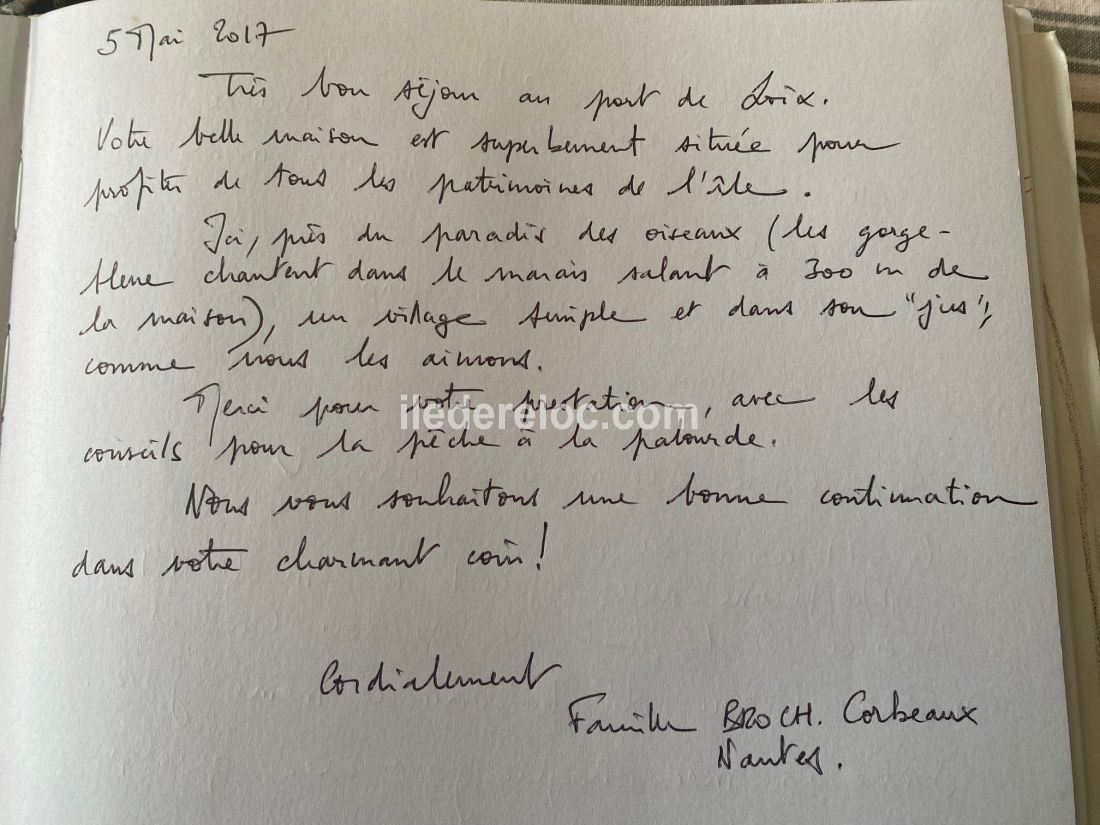 5 Mai 2017
Très bon séjour au port de Loix.
Votre belle maison est superbement située pour
profiter de tous les patrimoines de l'île.
Ici, près du paradis des oiseaux (les gorge-
bleue chantent dans le marais salant à 300 m de
la maison), un village simple et dans son "jus",
comme nous les aimons.
Merci pour votre prestation, avec les
iledereloc.com
conseils pour la pêche à la palourde.
Nous vous souhaitons une bonne continuation
dans votre charmant coin!
Cordialement
Famille BROCH. Corbeaux
Nantes.